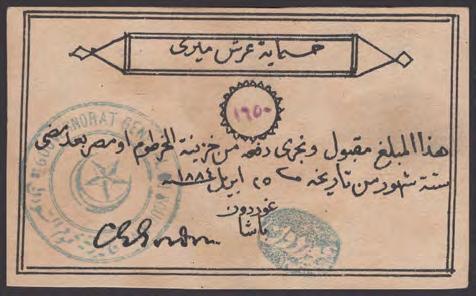 خمسماية غرش ميرى
١٦٥٠
هذا المبلغ مقبول ونجرى دفعه من خزينة الخرطوم او مصر بعد مضى
ستة شهور من تاريخه ٢٥ ابريل ١٨٨٤ سنة
غوردون
باشا
C G Gordon
GOUVERNORAT GEN